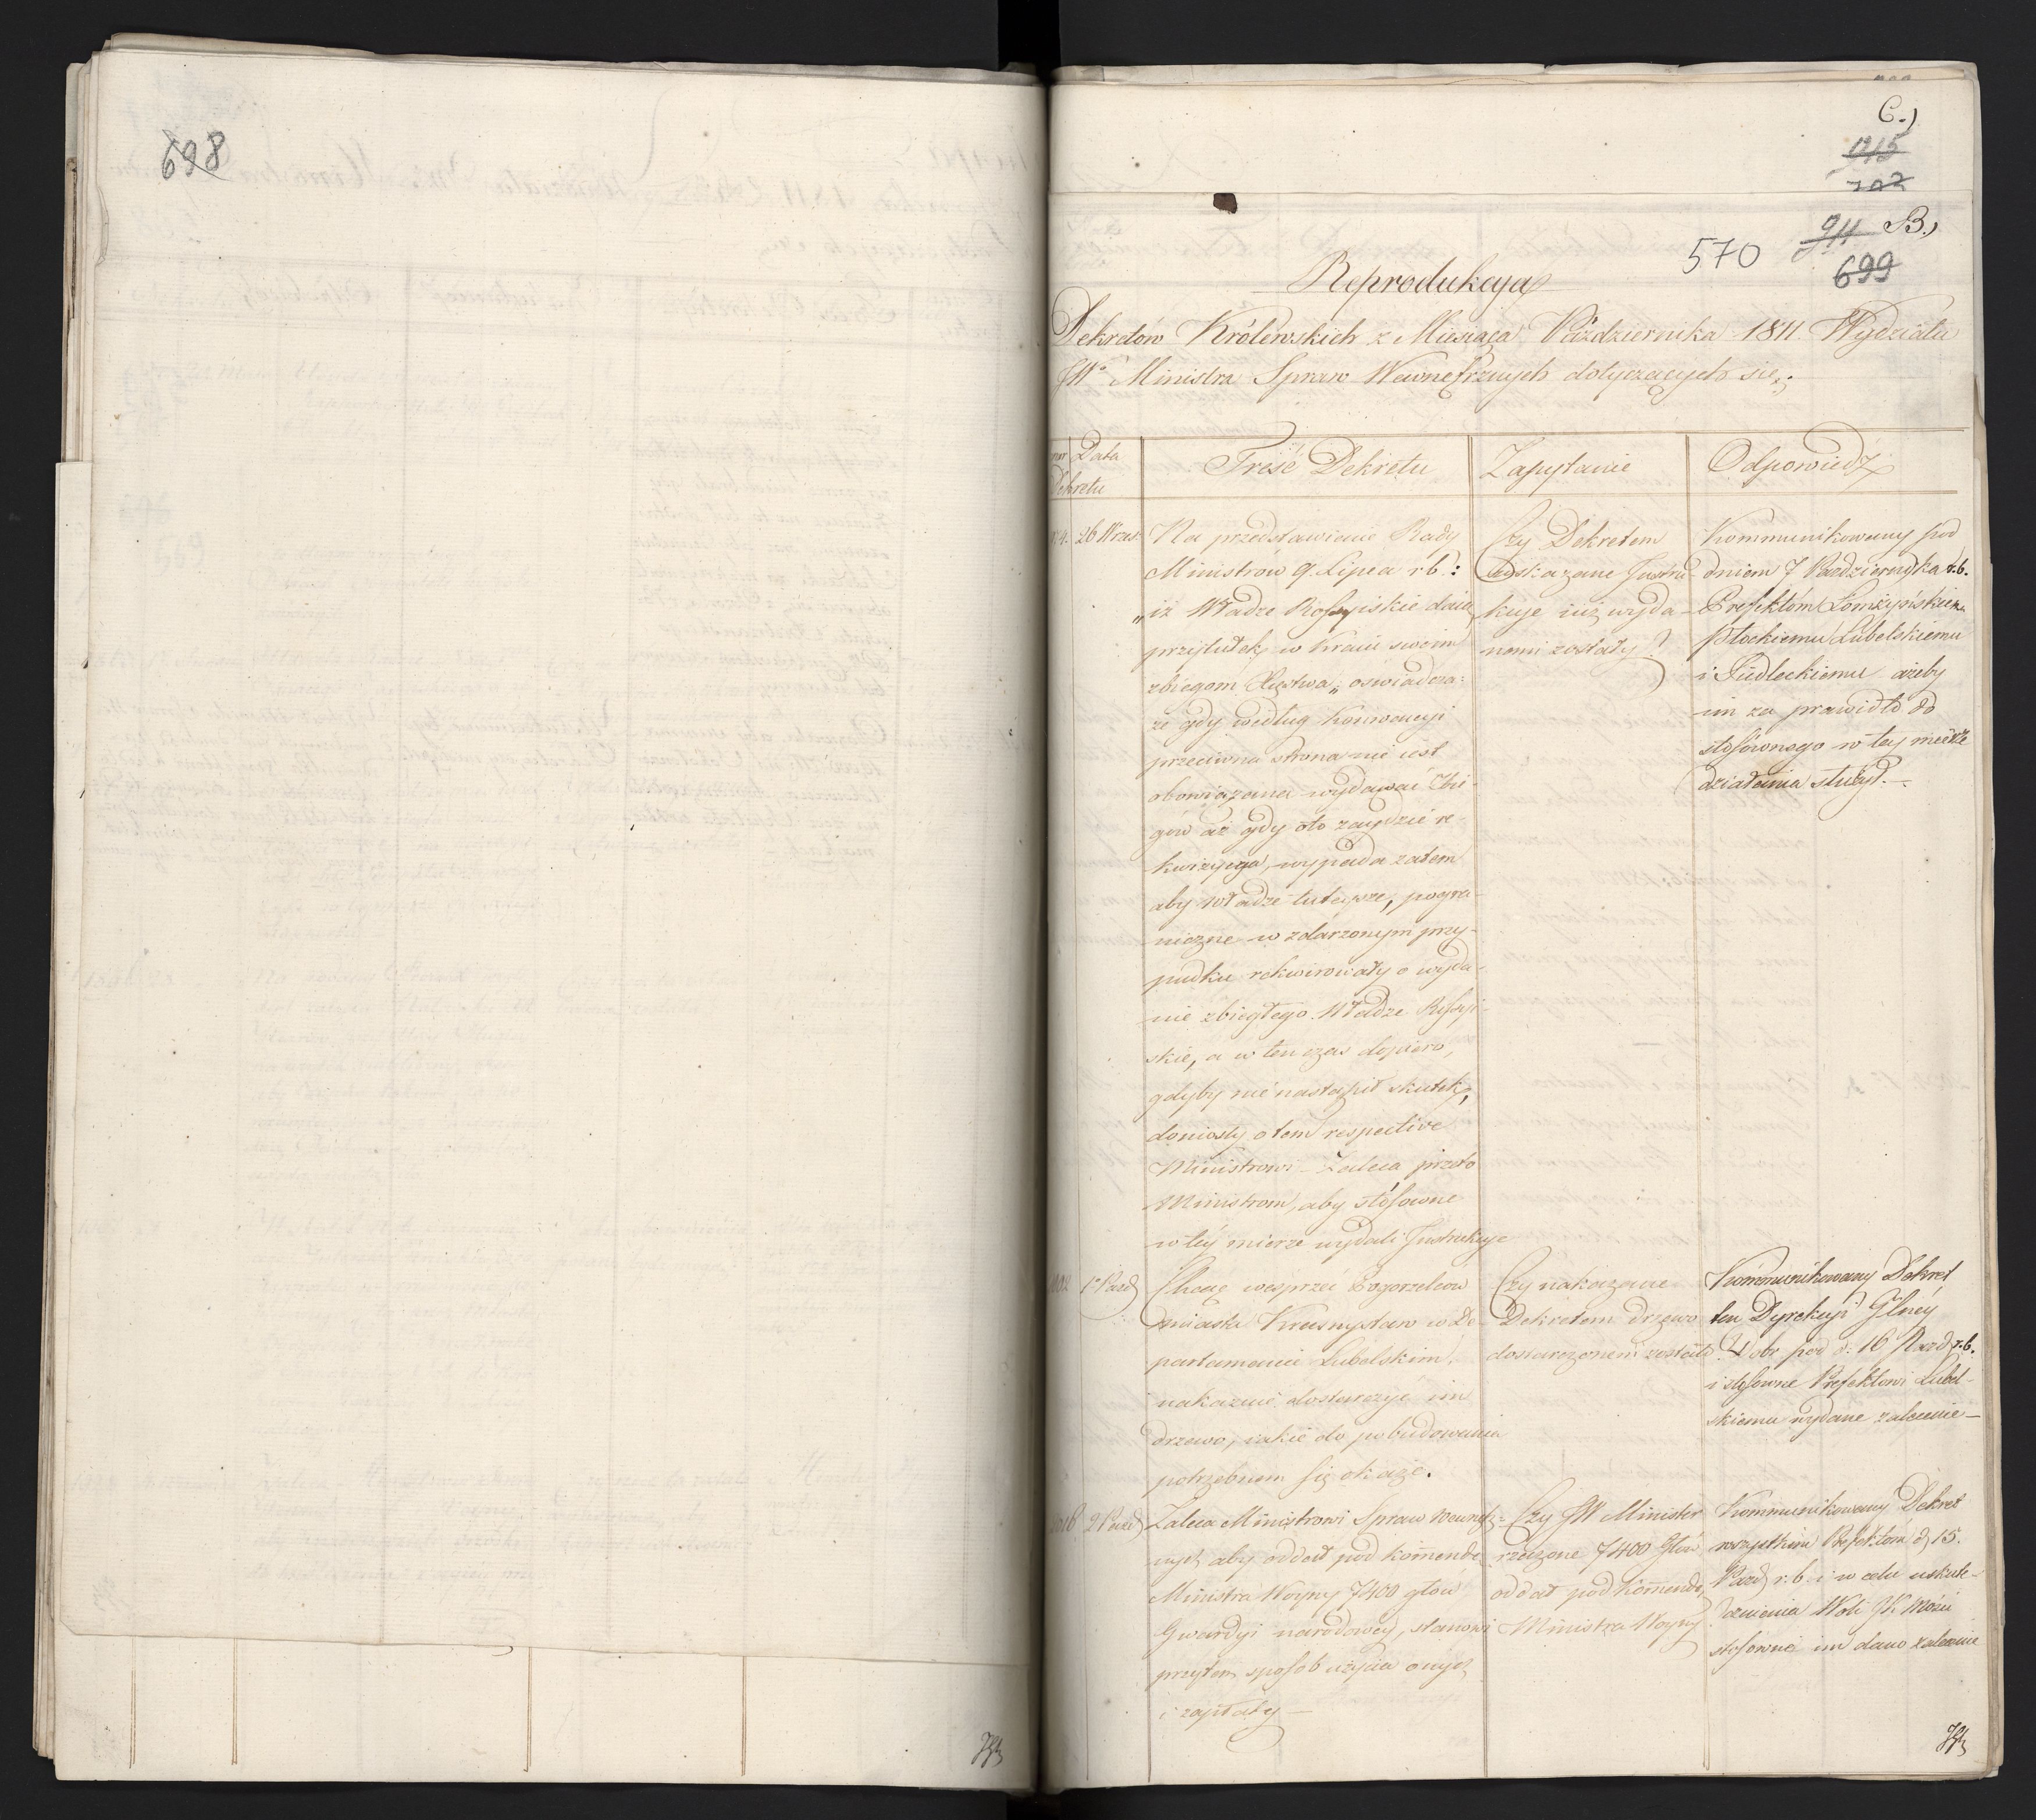 698
C.)
915
702
911 B.)
570
699
Reprodukcya
Dekretów Królewskich z Miesiąca Października 1811. Wydziału
JWo Ministra Spraw Wewnętrznych dotyczących się;
Data
Dekretu
Treść Dekretu
Zapytanie
Odpowiedź
26 Wrześ:
Na przedstawienie Rady
Ministrów 9. Lipca r.b.:
„iż Władze Rossyiskie daią
przytułek w Kraiu swoim
zbiegom Xięstwa„ oświadcza:
że gdy według Konwencyi
przeciwna strona nie iest
obowiązana wydawać Zbie-
gów aż gdy oto zaydzie re-
kwizycya, wypada zatem
aby Władze tuteysze, pogra-
niczne w zdarzonym przy-
padku rekwirowały o wyda-
nie zbiegłego Władze Rossyi-
skie, a w ten czas dopiero,
gdyby nie nastąpił skutek,
doniosły o tem respective
Ministrowi – Zaleca przeto
Ministrom, aby stósowne
w téy mierze wydali Instrukcye
Czy Dekretem
wskazane Instru-
kcye iuż wyda-
nemi zostały?
Kommunikowany pod
dniem 7 Października r.b.
Prefektóm Łomżyńskiemu
Płockiemu Lubelskiemu
i Siedleckiemu ażeby
im za prawidło do
stósownego w tey mierze
działania służył.–
1o Paźd
Chcąc wesprzeć Pogorzelców
miasta Krasnystaw w De-
partamencie Lubelskim,
nakazuie dostarczyć im
drzewo, iakie do pobudowania
potrzebnem się okaże.
Czy nakazane
Dekretem drzewo
dostarczonem zostało?
Kommunikowany Dekret
ten Dyrekcyi Głnéy
Dobr pod d: 16 Paźd r.b.
i stosowne Prefektowi Lubel-
skiemu wydane zalecenie –
2 Paźd
Zaleca Ministrowi Spraw Wewnętrz-
nych aby oddał pod kommendę
Ministra Woyny 7400 głów
Gwardyi narodowey, stanowi
przytem sposób użycia onych
i zapłaty –
Czy JW Minister
rzeczone 7400 Głów
oddał pod kommendę
Ministra Woyny
Kommunikowany Dekret
wszystkim Prefektóm d. 15.
Paźd r.b. i w celu uskute-
cznienia Woli JK Mości
stósowne im dano zalecenie